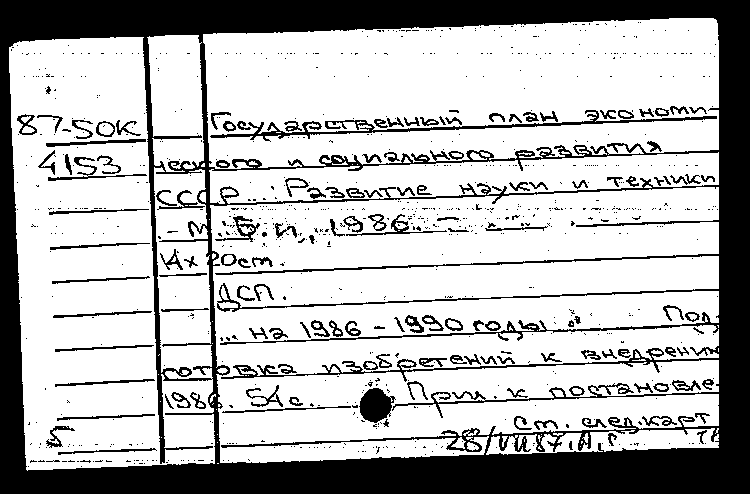 87-50к Государственный план экономи-
4153 ческого и социального развития
СССР...: Развитие науки и техники
.- М.: Б.и., 1986. -
14х20см.
ДСП.
... на 1986 - 1990 годы: Под-
готовка изобретений к внедрению
1986. 54 с. Прил. к постановле-
см. след. карт
28/VII87.А.Г